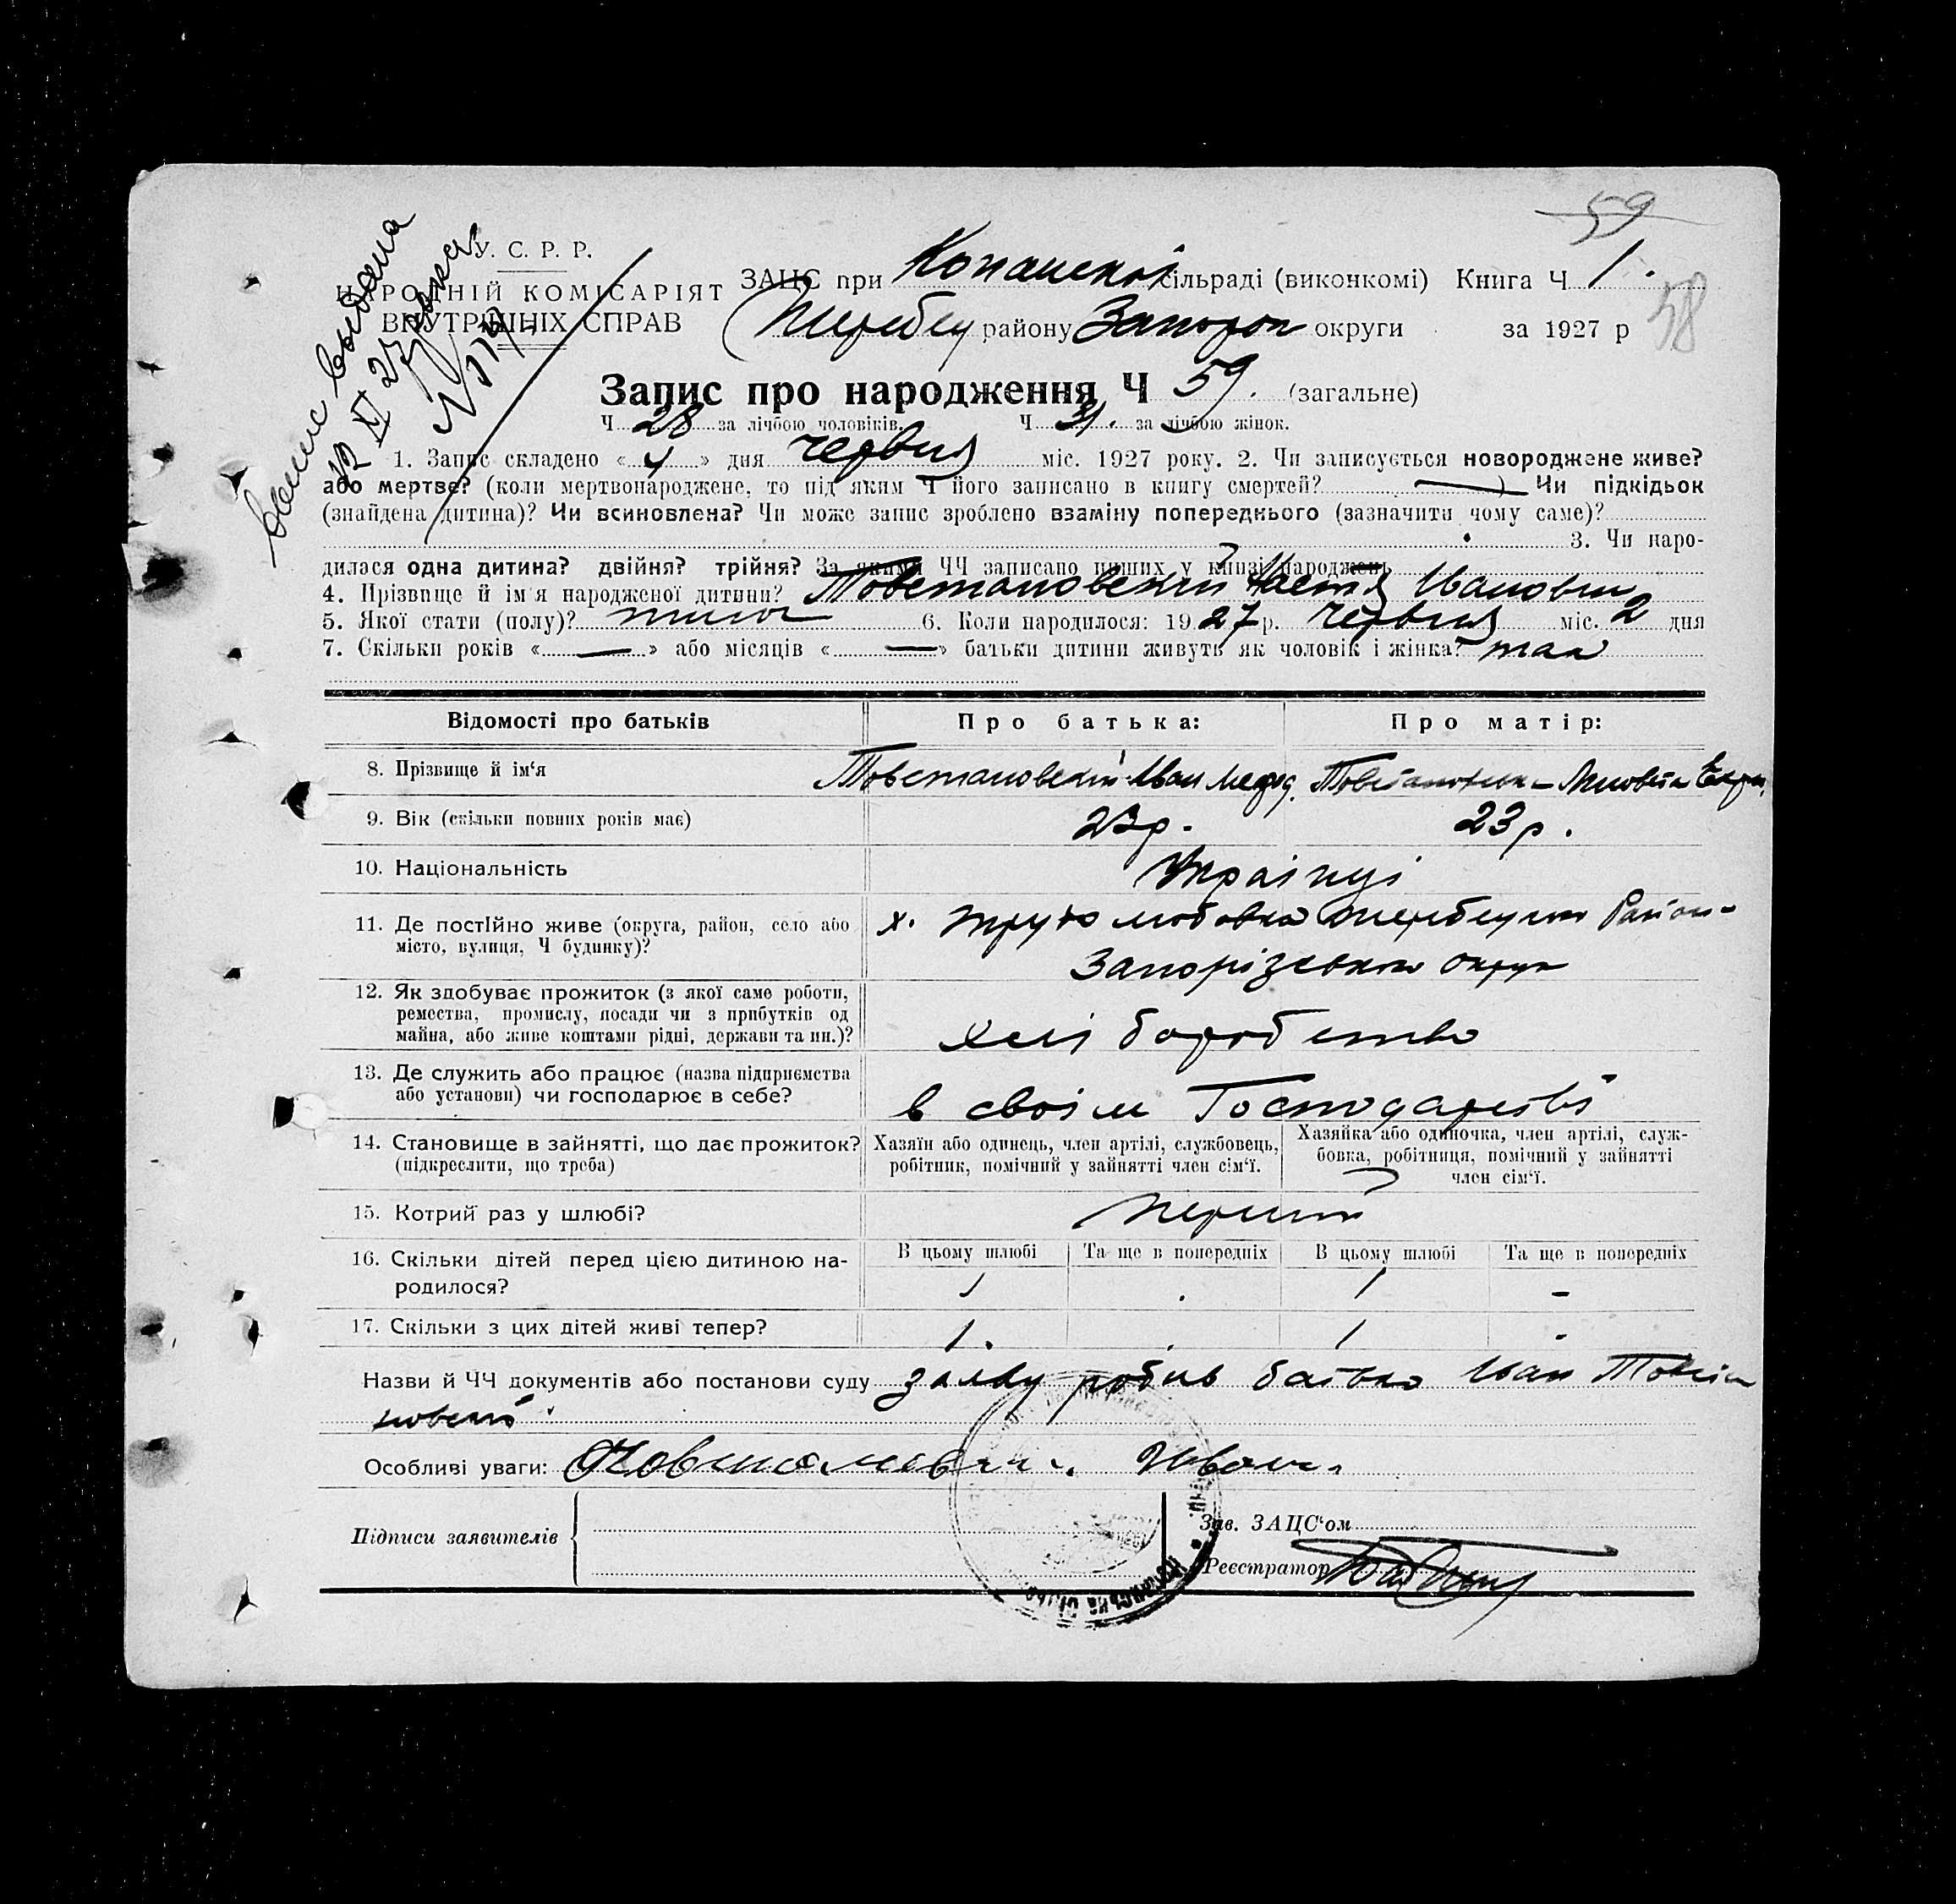 59
У. С. Р. Р.
НАРОДНІЙ КОМІСАРІЯТ
ВНУТРІШНІХ СПРАВ
выпис выдана
12 XI 27 року
N 1179
ЗАЦС при Копанской сільраді (виконкомі) Книга Ч 1.
Жеребец району Запорож округи за 1927 р
58
Запис про народження Ч 59. (загальне)
Ч 28 за лічбою чоловіків. Ч 31. за лічбою жінок.
1. Запис складено « 4 » дня червня міс. 1927 року. 2. Чи записується новороджене живе?
або мертве? (коли мертвонароджене, то під яким Ч його записано в книгу смертей? —) Чи підкідьок
(знайдена дитина)? Чи всиновлена? Чи може запис зроблено взаміну попереднього (зазначити чому саме)?
3. Чи наро-
дилася одна дитина? двійня? трійня? За якими ЧЧ записано инших у книзі народжень
4. Прізвище й ім'я народженої дитини? Товстановский Іванович
5. Якої стати (полу)? 6. Коли народилося: 19 27 р. червня міс. 2 дня
7. Скільки років « — » або місяців « — » батьки дитини живуть як чоловік і жінка? так
Відомості про батьків Про батька: Про матір:
8. Прізвище й ім'я Товстановскій Иван
9. Вік (скільки повних років має) 23р. 23р.
10. Національність Українці
11. Де постійно живе (округа, район, село або х. Трудолюбовка Жеребецкого Район-
місто, вулиця, Ч будинку)? Запорізькои округи
12. Як здобуває прожиток (з якої саме роботи,
ремества, промислу, посади чи з прибутків од
майна, або живе коштами рідні, держави та ин.)? хліборобство
13. Де служить або працює (назва підприємства
або установи) чи господарює в себе? в своім Господарстві
14. Становище в зайнятті, що дає прожиток? Хазяїн або одинець, член артілі, службовець, Хазяйка або одиночка, член артілі, служ-
(підкреслити, що треба) робітник, помічний у зайнятті член сім'ї. бовка, робітниця, помічний у зайнятті
член сім'ї.
15. Котрий раз у шлюбі? первий
16. Скільки дітей перед цією дитиною на- В цьому шлюбі Та ще в попередніх В цьому шлюбі Та ще в попередніх
родилося? 1 . 1 -
17. Скільки з цих дітей живі тепер? 1. . 1 -
Назви й ЧЧ документів або постанови суду заяву робив батько Иван Товста
новский.
Особливі уваги: Товстановск Иван
Підписи заявителів
Зав. ЗАЦС'ом
Реєстратор